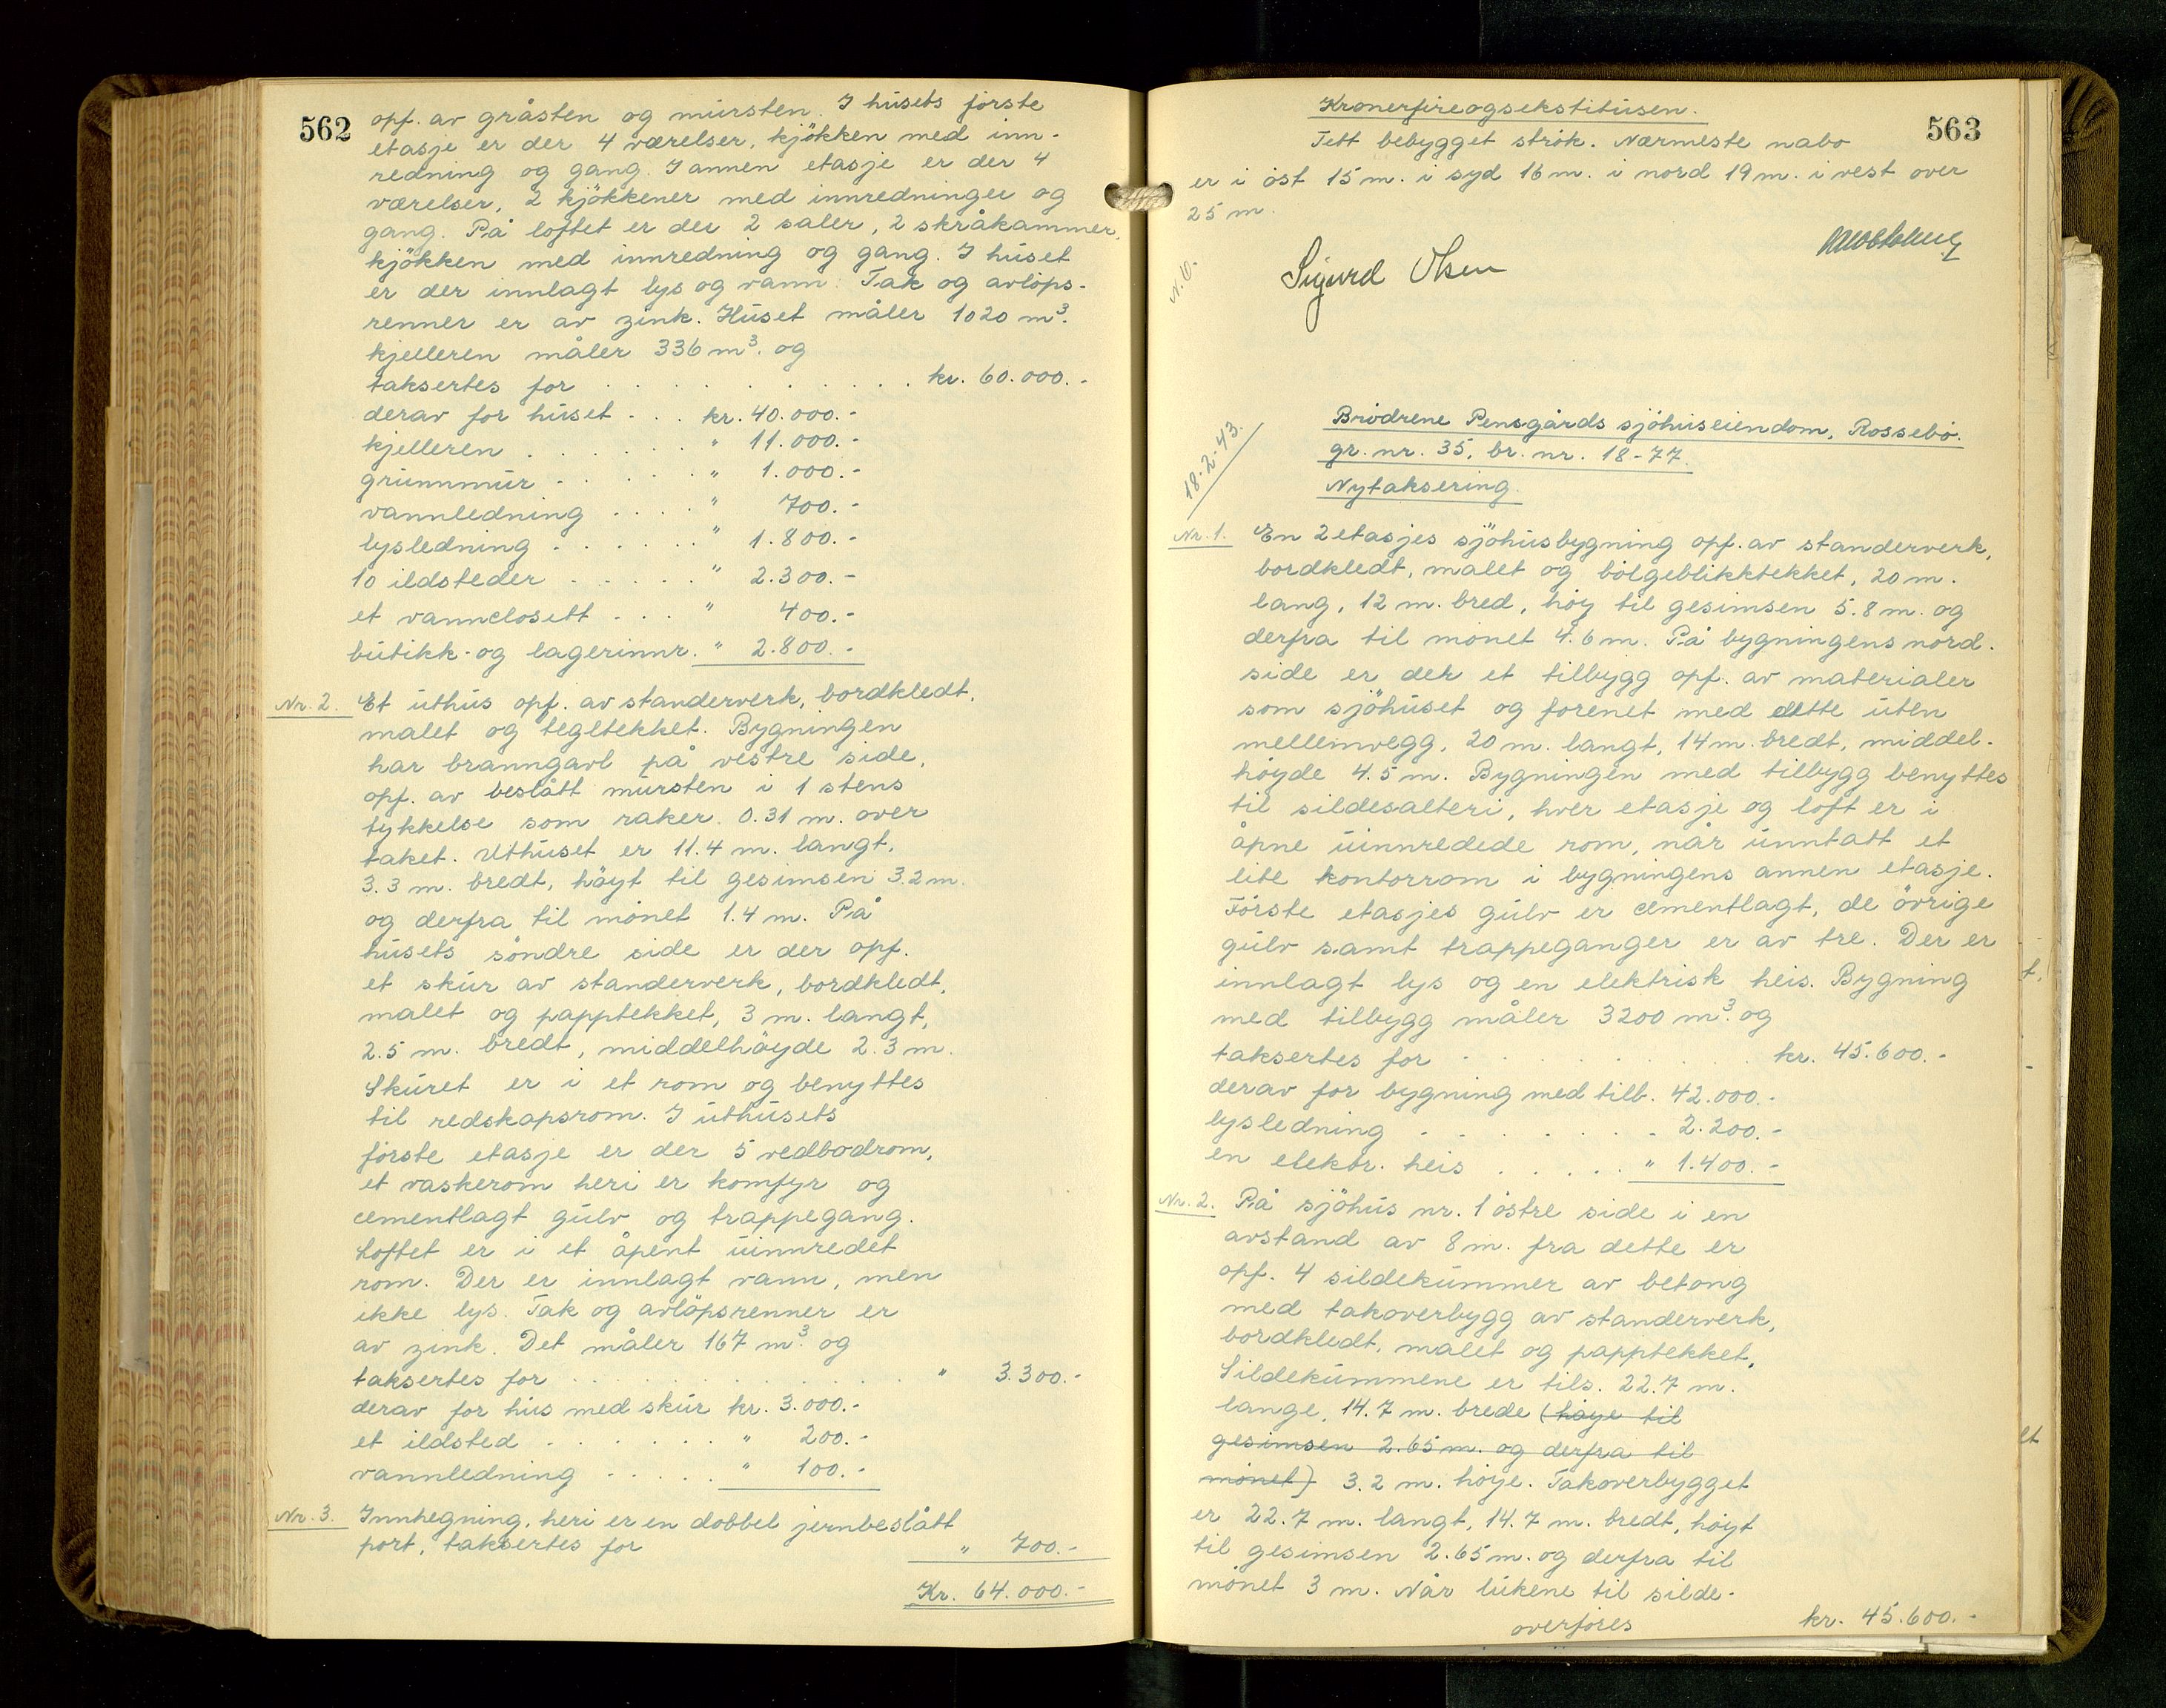 562
opf. av gråsten og mursten. I husets første
etasje er der 4 værelser, kjøkken med inn-
redning og gang. I annen etasje er der 4
værelser, 2 kjøkkener med innredninger og
gang. På loftet er der 2 saler, 2 skråkammer,
kjøkken med innredning og gang. I huset
er der innlagt lys og vann. Tak og avløps-
renner er av zink. Huset måler 1020 m³.
kjelleren måler 336 m³. og
taksertes for . . . . . . . . . . . kr. 60.000.-
derav for huset - . . kr. 40.000.-
kjelleren . . . . . . " 11.000.-
grunnmur - . . . . . " 1.000.-
vannledning . . . . " 700.-
lysledning - . . . . . " 1.800.-
10 ildsteder . . . . . " 2.300.-
et vannclosett . . . " 400.-
butikk- og lagerinnr. " 2.800.-
Nr. 2. Et uthus opf. av standerverk, bordkledt,
malet og tegltekket. Bygningen
har branngavl på vestre side,
opf. av beslått mursten i 1 stens
tykkelse som raker 0.31 m. over
taket. Uthuset er 11.4 m. langt,
3.3 m. bredt, høyt til gesimsen 3.2 m.
og derfra til mønet 1.4 m. På
husets søndre side er der opf.
et skur av standerverk, bordkledt,
malet og papptekket, 3 m. langt,
2.5 m. bredt, middelhøyde 2.3 m.
Skuret er i et rom og benyttes
til redskapsrom. I uthusets
første etasje er der 5 vedbodrom,
et vaskerom heri er komfyr og
cementlagt gulv og trappegang.
Loftet er i et åpent uinnredet
rom. Der er innlagt vann, men
ikke lys. Tak og avløpsrenner er
av zink. Det måler 167 m³. og
taksertes for . . . . . . . . . . . " 3.300.-
derav for hus med skur kr. 3.000.-
et ildsted . . . . . . . " 200.-
vannledning . . . . . " 100.-
Nr. 3. Innhegning, heri er en dobbel jernbeslått
port, taksertes for " 700.-
Kr. 64.000.-
563
Kronerfireogsekstitusen.
Tett bebygget strøk. Nærmeste nabo
er i øst 15 m. i syd 16 m. i nord 19 m. i vest over
25 m.
N.O.
Sigurd Olsen
18-2-43.
Brødrene Pensgårds sjøhuseiendom, Rossebø.
gr. nr. 35, br. nr. 18-77.
Nytaksering.
Nr. 1. En 2 etasjes sjøhusbygning opf. av standerverk,
bordkledt, malet og bølgeblikktekket, 20 m.
lang, 12 m. bred, høy til gesimsen 5.8 m. og
derfra til mønet 4.6 m. På bygningens nord-
side er der et tilbygg opf. av materialer
som sjøhuset og forenet med dette uten
mellemvegg, 20 m. langt, 14 m. bredt, middel-
høyde 4.5 m. Bygningen med tilbygg benyttes
til sildesalteri, hver etasje og loft er i
åpne uinnredede rom, når unntatt et
lite kontorrom i bygningens annen etasje.
Første etasjes gulv er cementlagt, de øvrige
gulv samt trappeganger er av tre. Der er
innlagt lys og en elektrisk heis. Bygning
med tilbygg måler 3200 m³. og
taksertes for - . . . . . . . . . kr. 45.600.-
derav for bygning med tilb. 42.000.-
lysledning - . . . . . . . 2.200.-
en elektr. heis . . . . . " 1.400.-
Nr. 2. På sjøhus nr. 1 østre side i en
avstand av 8 m. fra dette er
opf. 4 sildekummer av betong
med takoverbygg av standerverk,
bordkledt, malet og papptekket,
Sildekummene er tils. 22.7 m.
lange, 14.7 m. brede (høye til
gesimsen 2.65 m. og derfra til
mønet) 3.2 m. høye. Takoverbygget
er 22.7 m. langt, 14.7 m. bredt, høyt
til gesimsen 2.65 m. og derfra til
mønet 3 m. Når lukene til silde-
overføres kr. 45.600.-
t,
et